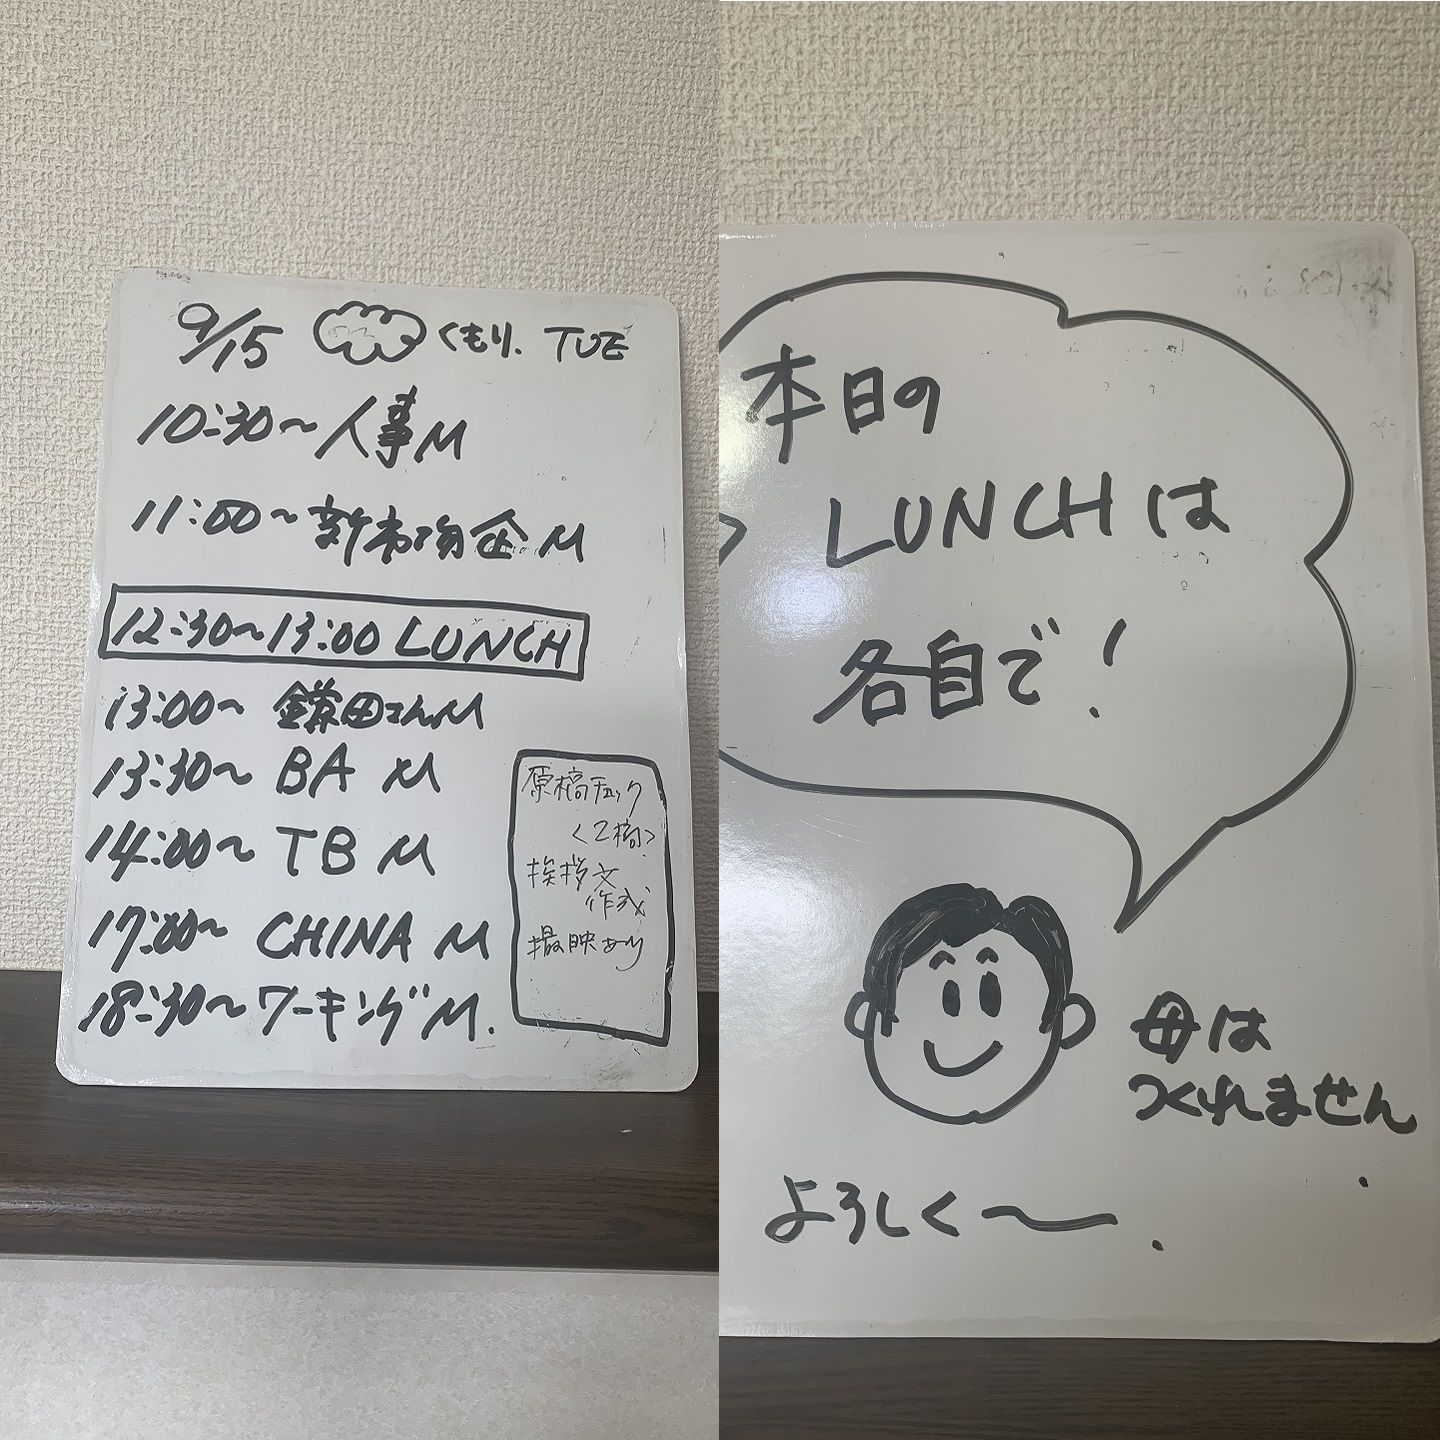 9/15 くもり. TUE
10:30～人事M
11:00～新市場企M
12:30～13:00 LUNCH
13:00～ 鎌田さんM
13:30～ BA M
14:00～ TB M
17:00～ CHINA M
18:30～ワーキングM.
原稿チェック
<2稿>
挨拶文
作成
撮映あり
本日の
LUNCHは
各自で!
母は
つくれません
よろしく～.